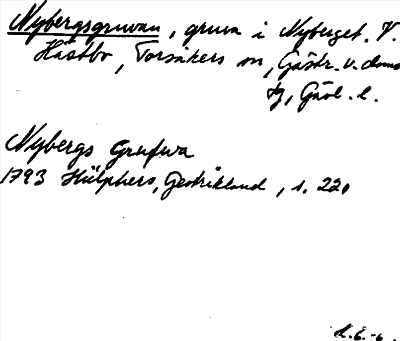 Nybergsgruvan, gruva i Nyberget. V.
Hästbo, Torsåkers sn, Gästr. v. doms
tg, Gävl. l.
Nybergs Grufwa
1793 Hülphers, Gestrikland, s. 220